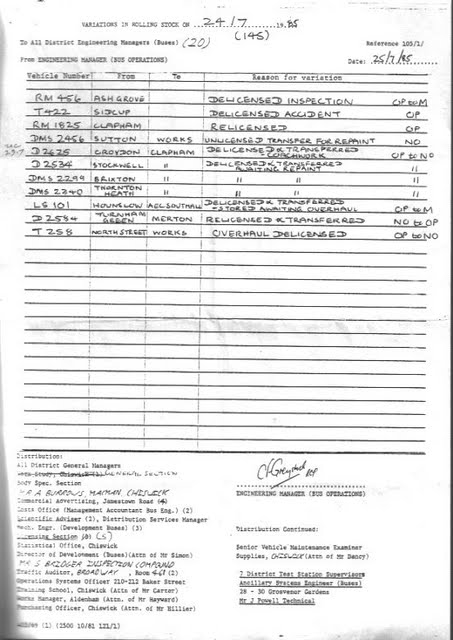 VARIATIONS IN ROLLING STOCK ON 24/7 1985
(145)
To All District Engineering Managers (Buses) (20) Reference 105/1/
From ENGINEERING MANAGER (BUS OPERATIONS) Date: 25/7/85
Vehicle Number From To Reason for variation
RM 456 ASHGROVE DELICENSED INSPECTION OP to M
T 422 SIDCUP DELICENSED ACCIDENT OP
RM 1825 CLAPHAM RELICENSED OP
DMS 2456 SUTTON WORKS UNLICENSED TRANSFER FOR REPAINT NO
D 2625 CROYDON CLAPHAM DELICENSED & TRANSFERRED COACHWORK OP to NO
D 2534 STOCKWELL " DELICENSED & TRANSFERRED AWAITING REPAINT "
DMS 2299 BRIXTON " " " "
DMS 2240 THORNTON HEATH " " " "
LS 101 HOUNSLOW AEC SOUTHALL DELICENSED & TRANSFERRED - STORED AWAITING OVERHAUL OP to M
D 2584 TURNHAM GREEN MERTON RELICENSED & TRANSFERRED NO to OP
T 258 NORTH STREET WORKS OVERHAUL DELICENSED OP to NO
Distribution:
All District General Managers
Work Study, Chiswick (1) GENERAL SECTION
Body Spec. Section
MR A BURROWS, MAIMAN, CHISWICK
Commercial Advertising, Jamestown Road
Costs Office (Management Accountant Bus Eng.) (2)
Scientific Adviser (2), Distribution Services Manager
Mech. Engr. (Development Buses) (3)
Licensing Section (5)
Statistical Office, Chiswick
Director of Development (Buses)(Attn of Mr Simon)
MR S BRIDGER INSPECTION COMPOUND
Traffic Auditor, BROADWAY, Room 468 (2)
Operations Systems Officer 210-212 Baker Street
Training School, Chiswick (Attn of Mr Carter)
Works Manager, Aldenham (Attn of Mr Hayward)
Purchasing Officer, Chiswick (Attn of Mr Hillier)
(1) (2500 10/81 1Z1/1)
ENGINEERING MANAGER (BUS OPERATIONS)
Distribution Continued:
Senior Vehicle Maintenance Examiner
Supplies, CHISWICK (Attn of Mr Dancy)
7 District Test Station Supervisors
Ancillary Systems Engineer (Buses)
28 - 30 Grosvenor Gardens
Mr J Powell Technical